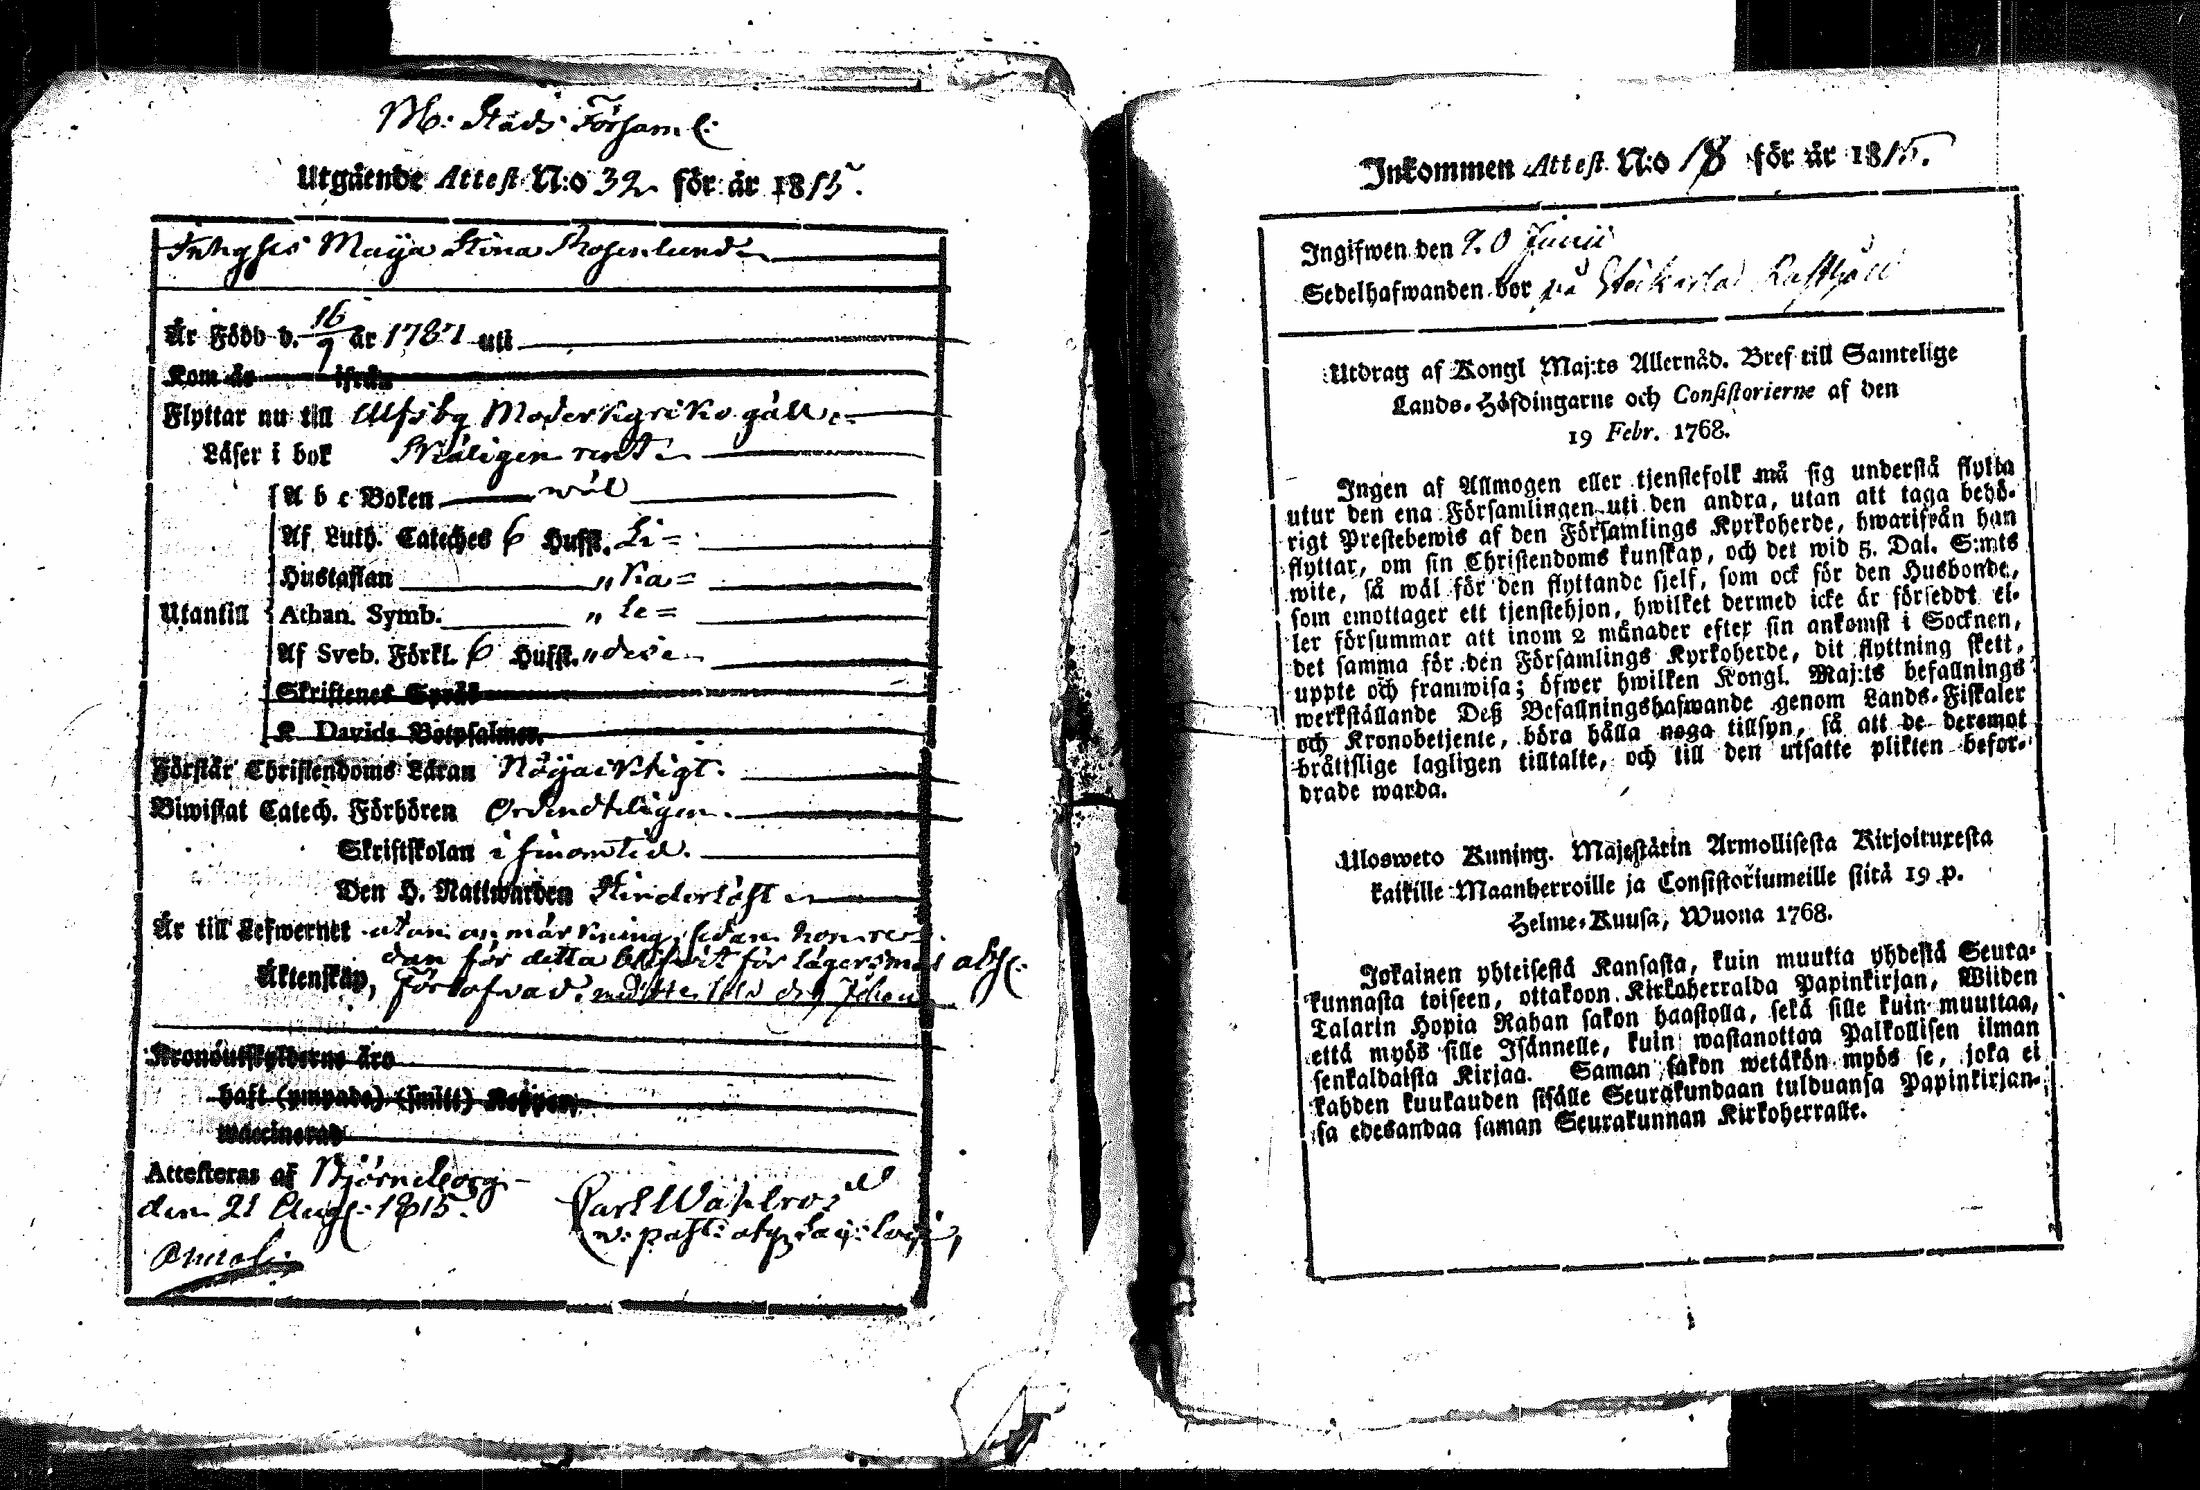 B: Stads Församl:
Utgående Attest N:o 32 för år 1815.
Maija Stina Rosenlund
Är Född d. 16/9 år 1787 uti
Kom år ifrån
Flyttar nu till Ulfsby Moderkyrko gäll
Läser i bok Skäligen rent
A b c Boken wäl
Af Luth. Cateches 6 Hufst. Li=
Hustaflan „ ka=
Utantill Athan. Symb. „ le=
Af Sveb. Förkl. 6 Hufst. „ des
Skriftenes Språk
K. Davids Botpsalmer.
Förstår Christendoms Läran Nöjacktigt.
Biwistat Catech. Förhören Ordenteligen.
Skriftskolan i sinom tid.
Den H. Nattwarden
Är till Lefwernet utan anmärkning, sedan hon re-
dan för detta blifwit för lägersmål abs:
Äktenskap,
Kronoutskylderne äro
haft (ympade) (smitt) Koppor,
waccinerad
Attesteras af Björneborg
den 21 Aug: 1815. Carl Wahlroos
v: past:
Inkommen Attest N:o 18 för år 1815.
Ingifwen den 20 Junii
Sedelhafwanden bor på
Utdrag af Kongl Maj:ts Allernåd. Bref till Samtelige
Lands-Höfdingarne och Consistorierne af den
19 Febr. 1768.
Ingen af Allmogen eller tjenstefolk må sig understå flytta
utur den ena Församlingen uti den andra, utan att taga behö-
rigt Prestebewis af den Församlings Kyrkoherde, hwarifrån han
flyttar, om sin Christendoms kunskap, och det wid 5. Dal. S:mts
wite, så wäl för den flyttande sjelf, som ock för den Husbonde,
som emottager ett tjenstehjon, hwilket dermed icke är försedt el-
ler försummar att inom 2 månader efter sin ankomst i Socknen,
det samma för den Församlings Kyrkoherde, dit flyttning skett,
uppte och framwisa; öfwer hwilken Kongl. Maj:ts befallnings
werkställande Deß Befallningshafwande genom Lands-Fiskaler
och Kronobetjente, böra hålla noga tillsyn, så att de deremot
bråtislige lagligen tilltalte, och till den utsatte plikten befor-
drade warda.
Ulosweto Kuning. Majestätin Armollisesta Kirjoituxesta
kaikille Maanherroille ja Consistoriumeille siitä 19 p.
Helme-Kuusa, Wuona 1768.
Jokainen yhteisestä Kansasta, kuin muutta yhdestä Seura-
kunnasta toiseen, ottakoon Kirkoherralda Papinkirjan, Wiiden
Talarin Hopia Rahan sakon haastolla, sekä sille kuin muuttaa,
että myös sille Isännelle, kuin wastanottaa Palkollisen ilman
senkaldaista Kirjaa. Saman sakon wetäkön myös se, joka ei
kahden kuukauden sisälle Seurakundaan tulduansa Papinkirjan-
sa edesandaa saman Seurakunnan Kirkoherralle.